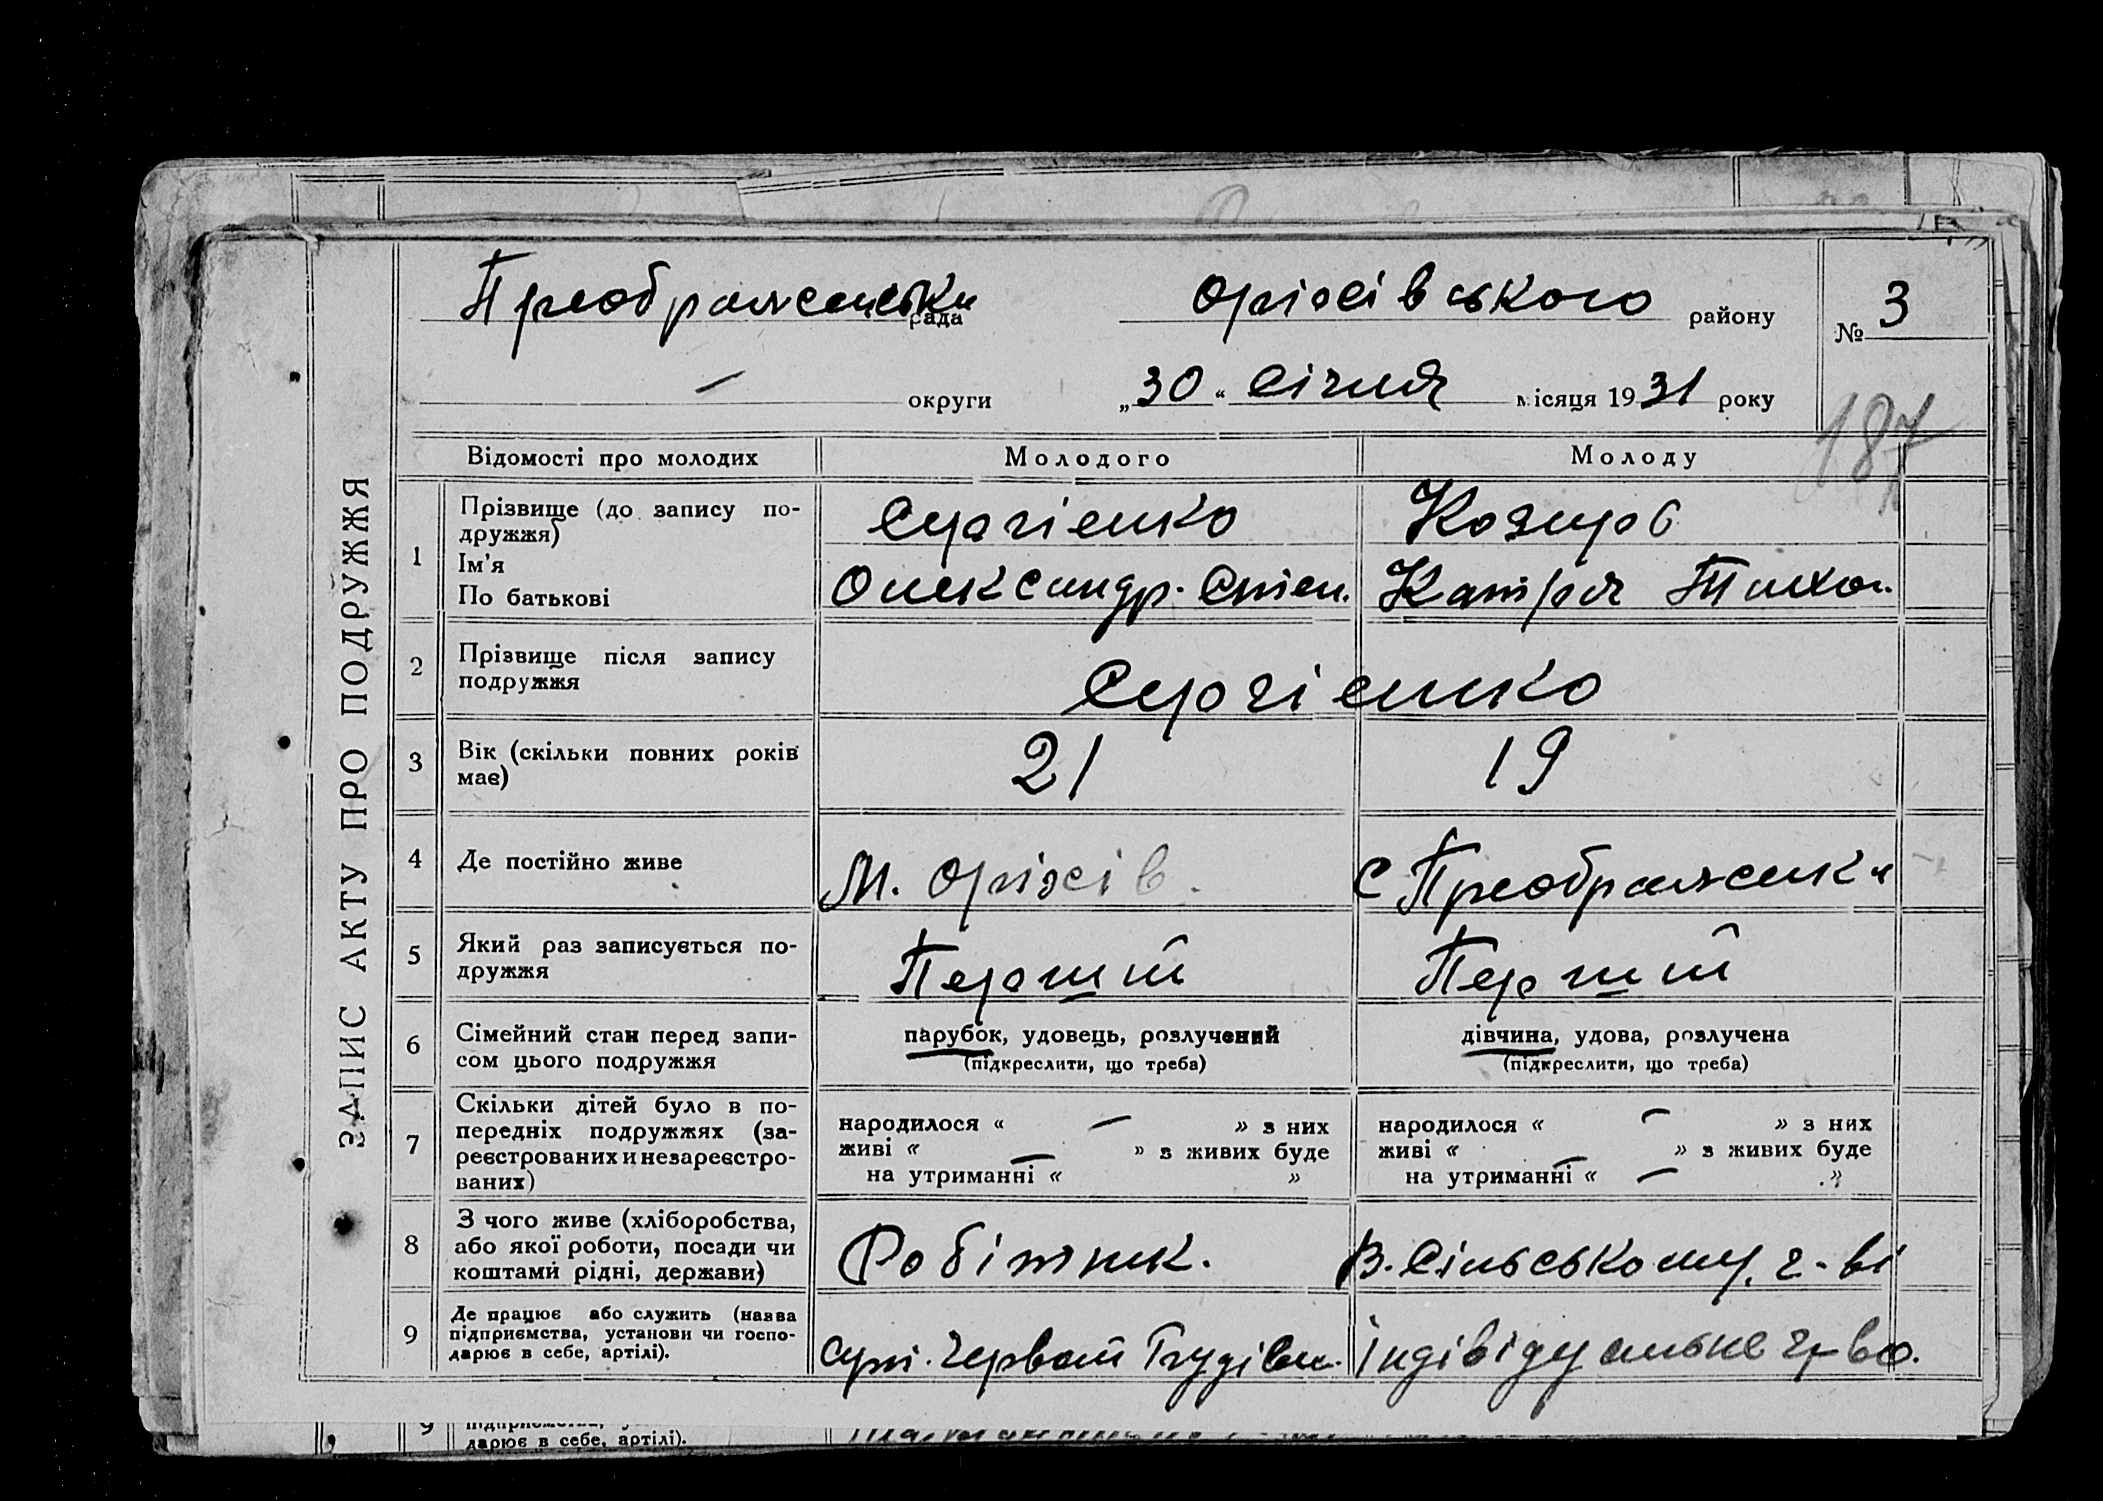 ЗАПИС АКТУ ПРО ПОДРУЖЖЯ
Преображенська рада Оріхівського району № 3
— округи „30“ Січня місяця 1931 року
187
Відомості про молодих Молодого Молоду
1 Прізвище (до запису по-
дружжя) Сергієнко Козирь
Ім'я
По батькові Олександр. Степ. Катря Тихон.
2 Прізвище після запису
подружжя Сергієнко
3 Вік (скільки повних років
має) 21 19
4 Де постійно живе М. Оріхів. С Преображенка
5 Який раз записується по-
дружжя Перший Перший
6 Сімейний стан перед запи-
сом цього подружжя
парубок, удовець, розлучений
(підкреслити, що треба)
дівчина, удова, розлучена
(підкреслити, що треба)
7 Скільки дітей було в по-
передніх подружжях (за-
реєстрованих и незареєстро-
ваних)
народилося « — » з них
живі « — » з живих буде
на утриманні « »
народилося « — » з них
живі « — » з живих буде
на утриманні « — »
8 З чого живе (хліборобства,
або якої роботи, посади чи
коштами рідні, держави)
Робітник. В. Сільському. г-ві
9 Де працює або служить (назва
підприємства, установи чи госпо-
дарює в себе, артілі).
арт. Червон Будівн. Індівідуальне г-во.
9
дарює в себе, артілі).